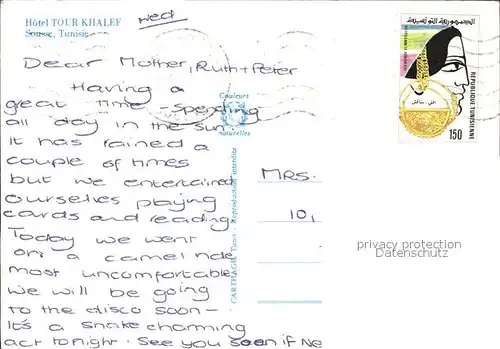 Hôtel TOUR KHALEF
Sousse, Tunisie
Wed
Dear Mother, Ruth + Peter
Having a
great time - spending
all day in the sun.
It has rained a
couple of times
but we entertained
ourselves playing
cards and reading
Today we went
on a camel ride
most uncomfortable
we will be going
to the disco soon –
It's a snake charming
act tonight. See you soon if we
Couleurs
naturelles
CARTHAGE Tunis - Reproduction interdite
MRS.
10,
privacy protection
Datenschutz
الجمهورية التونسية
REPUBLIQUE TUNISIENNE
150